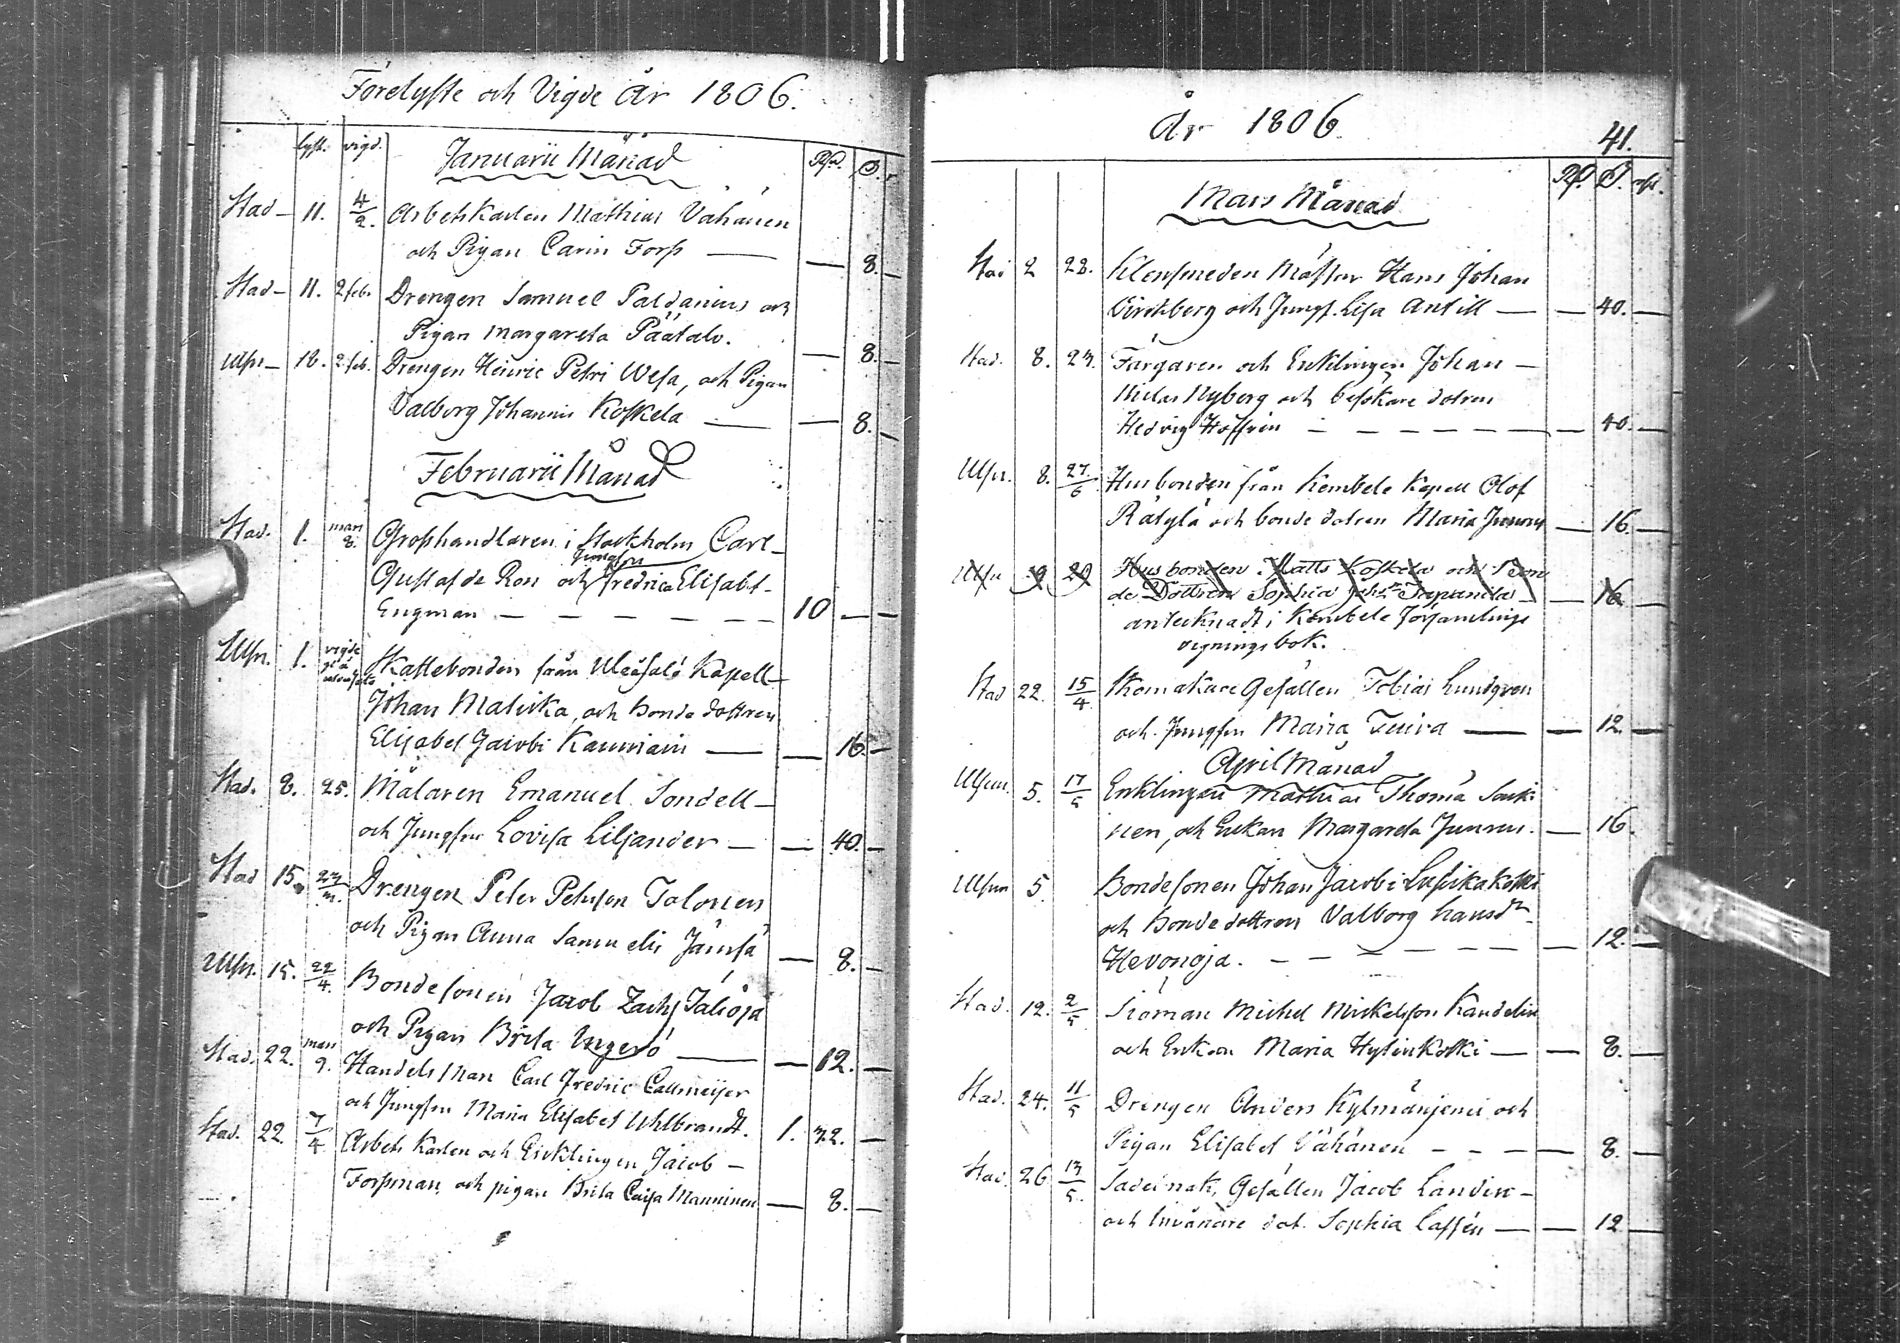 Förelyste och Vigde År 1806.
lyst. vigd. Januarii Månad Rd. S.
Stad – 11. 4/2. Arbetskarlen Mathias Vähänen
och Pigan Carin Forss — — 8. –
Stad – 11. 2 feb. Drengen Samuel Paldanius och
Pigan Margareta Päätalo. — 8. –
Ulsn – 12. 2 feb. Drengen Henric Petri Wesa, och Pigan
Valborg Johannis Koskela — — 8. –
Februarii Månad
Stad. 1. mars 8. Grosshandlaren i Stockholm Carl
Gustaf de Ron och Jungfru Fredrica Elisabt
Engman – – – – – – 10 – –
Ulsn. 1. vigde Skattebonden från Uleåsalo Kapell
Johan Mativka, och bonde dottren
Elisabet Jacobi — — 16. –
Stad. 8. 25. Målaren Emanuel Sondell –
och Jungfru Lovisa Liljander – — 40. –
Stad 15. 23/m. Drengen Peter Petersson Tolonen
och Pigan Anna Samuelis Jämsä — 8. –
Ulsn. 15. 22/4. Bondesonen Jacob Zachs Jaloja
och Pigan Brita Ungerö — — 12. –
Stad. 22. mars 9. Handelsman Carl Fredric Callmeijer
och Jungfru Maria Elisabet Uhlbrandt. 1. 32. –
Stad. 22 7/4 Arbets Karlen och Encklingen Jacob –
Forssman, och pigan Brita Caisa Manninen — 8. –
År 1806. 41.
Rd. S.
Mars Månad
Stad 2 28. Klensmeden Mästar Hans Johan
Birckberg och Jungf. Lisa Antill — — 40. –
Stad. 8. 23. Färgaren och Enklingen Johan –
Niclas Nyberg och besökare dotren
Hedvig Hoffrén – – – – – – — 40. –
Ulsn. 8. 27./6. Husbonden från Kembele Kapell Olof
Rätylä och bonde dotren Maria Junnus — 16. –
Ulsn 9 20 Husbonden Matts Koskela och Bon
de Dottren Sophia Tapanila — 16
antecknadt i Kembele Församlings
vigningsbok.
Stad 22. 15/4. Skomakare Gesällen Tobias Lundgren
och Jungfru Maria Tuira — — 12. –
April Månad
Ulsn. 5. 17/5 Enklingen Mathias Thoma Sarki
nen, och Enkan Margareta Junnus. — 16.
Ulsn 5. Bondesonen Johan Jacobi
och Bonde dottren Valborg Hansdr
Hevonoja. – – – – – — 12. –
Stad. 12. 2/5 Siöman Michel Mickelsson Kandelin
och Enkan Maria Hylinkoski — — 8. –
Stad. 24. 11/5 Drengen Anders Kylmänjemi och
Pigan Elisabet Vähänen – – – — 8. –
Stad. 26. 13/5. Sadelmak. Gesällen Jacob Landen –
och Invånare dot. Sophia Lassén — — 12 –